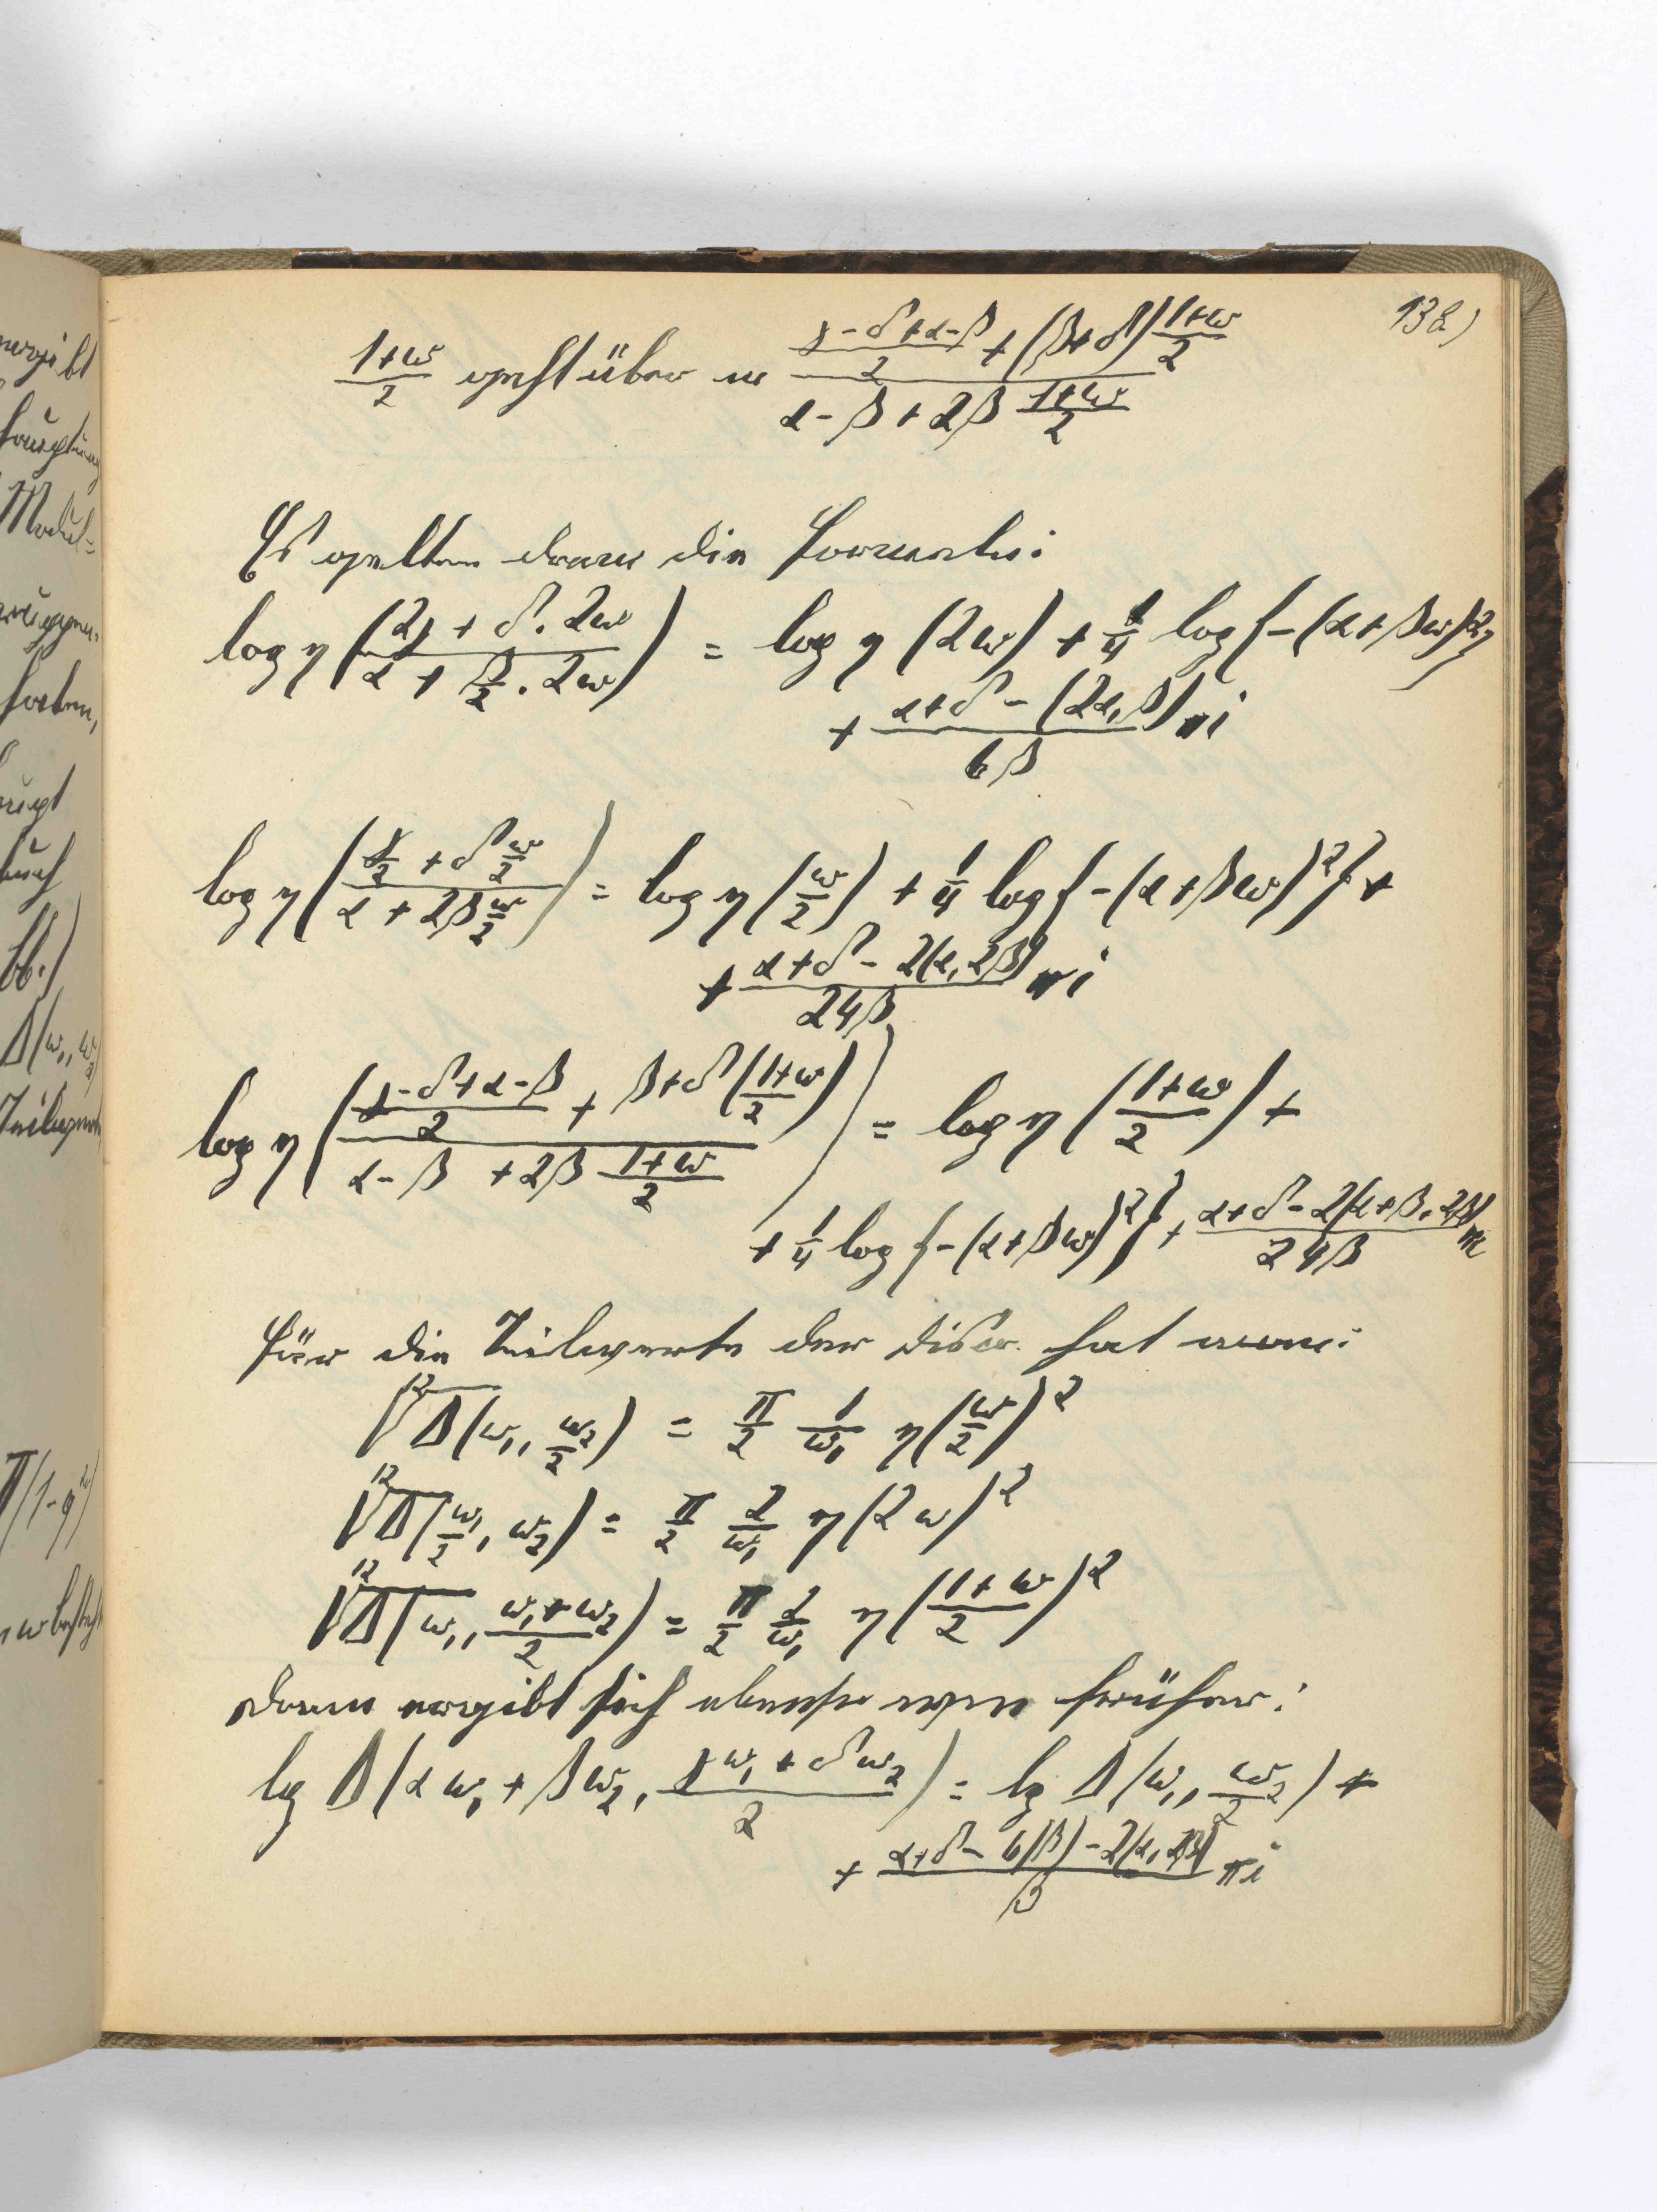 138)
(1+ω)/2 geht über in ((γ-δ+α-β)/2 + (β+δ) (1+ω)/2) / (α-β+2β (1+ω)/2)
Es gelten dann die Formeln:
log η ((2γ + δ . 2ω) / (α + β/2 . 2ω)) = log η (2ω) + 1/4 log {-(α+βω)²}
+ (α+δ - (2α, β))/(6β) πi
log η ((γ/2 + δ ω/2) / (α + 2β ω/2)) = log η (ω/2) + 1/4 log {-(α+βω)²} +
+ (α+δ - 2(α, 2β))/(24β) πi
log η (((γ-δ+α-β)/2 + β+δ ((1+ω)/2)) / (α-β +2β (1+ω)/2)) = log η ((1+ω)/2) +
+ 1/4 log {-(α+βω)²} + (α+δ-2(α+β, 2β))/(24β) πi
Für die Teilwerte der Discr. hat man:
¹²√Δ(ω₁, ω₂/2) = π/2 1/ω₁ η(ω/2)²
¹²√Δ(ω₁/2, ω₂) = π/2 2/ω₁ η(2ω)²
¹²√Δ(ω₁, (ω₁+ω₂)/2) = π/2 1/ω₁ η((1+ω)/2)²
Dann ergibt sich ebenso wie früher:
lg Δ(αω₁ + βω₂, (γω₁ + δω₂)/2) = lg Δ(ω₁, ω₂/2) +
+ (α+δ - 6(β) - 2(α, 2β))/β πi
ergibt
Modul=
haben,
bb.)
Δ(ω₁, ω₂)
Teilwerte
Π(1-q